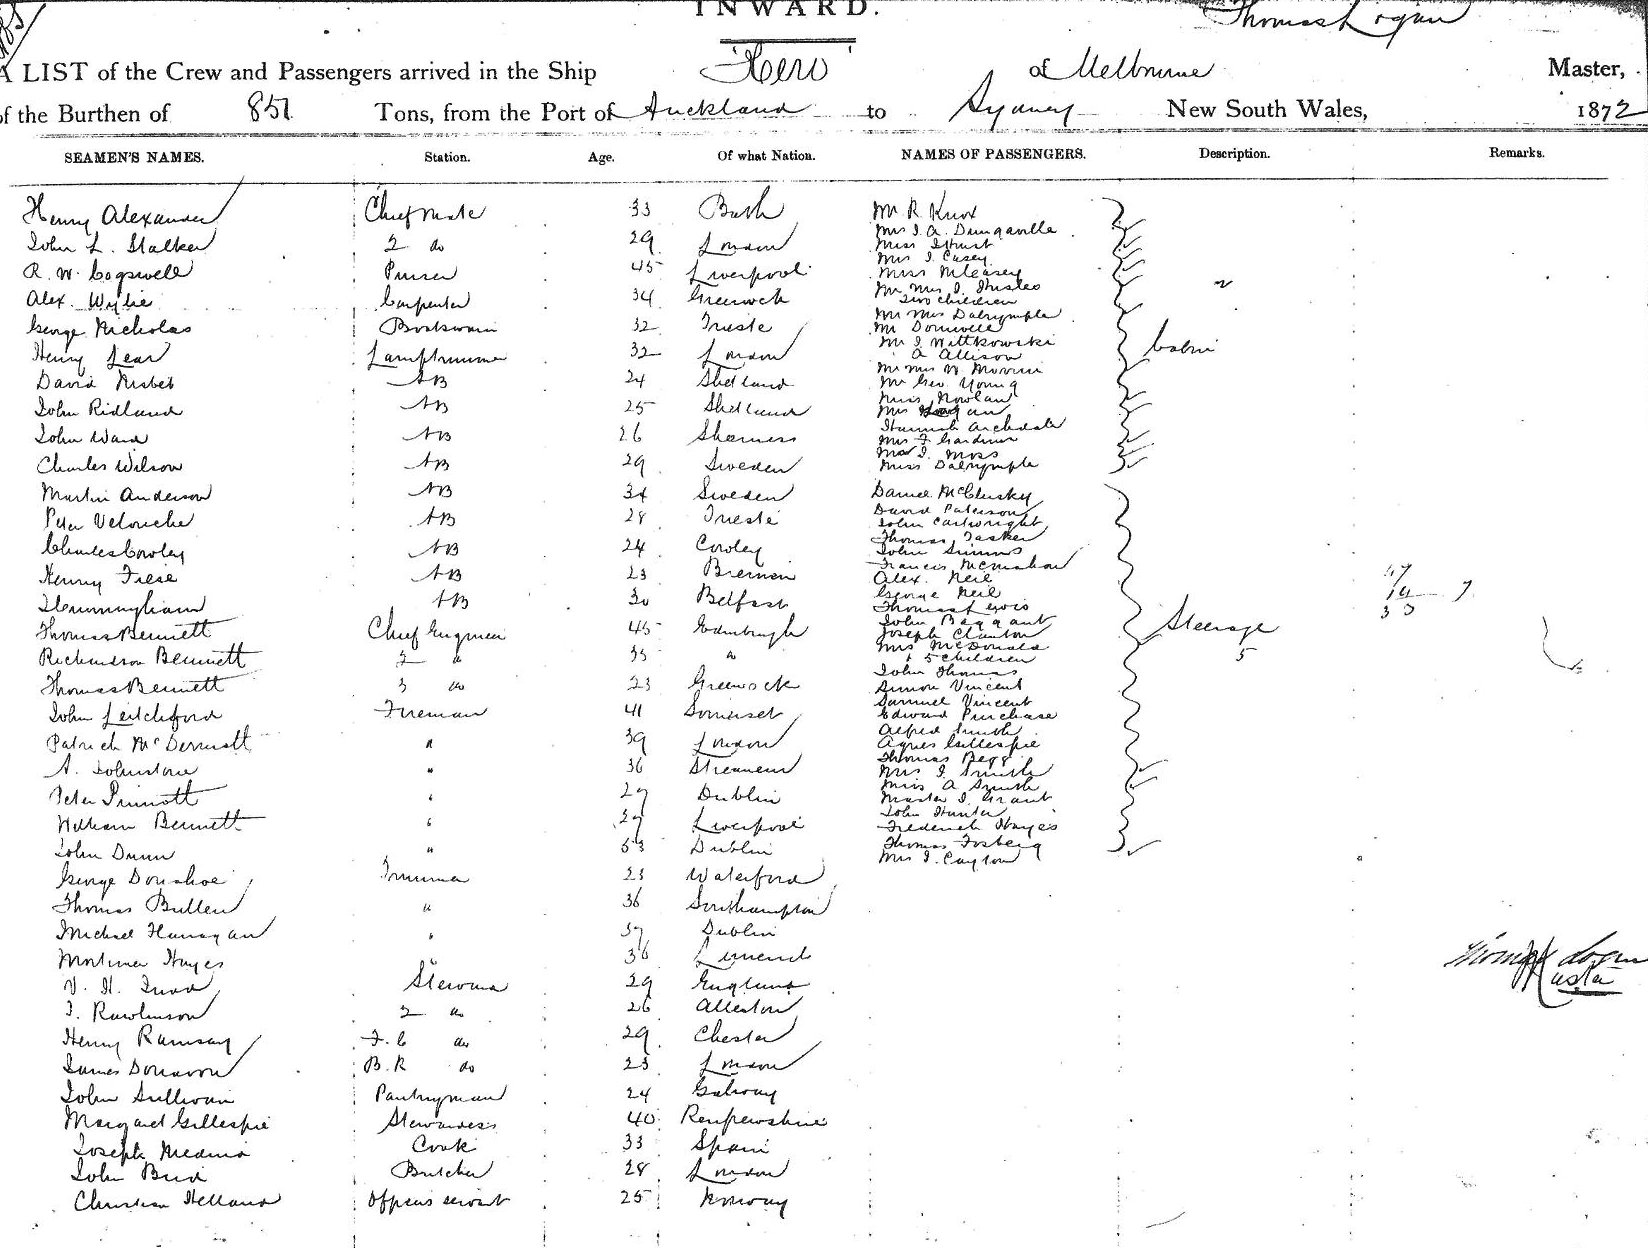 INWARD.
Thomas Logan
A LIST of the Crew and Passengers arrived in the Ship "Hero" of Melbourne Master,
of the Burthen of 851 Tons, from the Port of Auckland to Sydney New South Wales, 1872
SEAMEN'S NAMES. Station. Age. Of what Nation. NAMES OF PASSENGERS. Description. Remarks.
Henry Alexander Chief Mate 33 Bath
John L. Stalker 2 do 29 London
R. W. Cogswell Purser 45 Liverpool
Alex. Wylie Carpenter 34 Greenock
George Nicholas Boatswain 32 Trieste
Henry Lear Lamptrimmer 32 London
David Nisbet AB 24 Shetland
John Ridland AB 25 Shetland
John Ward AB 26 Sheerness
Charles Wilson AB 29 Sweden
Martin Anderson AB 34 Sweden
Peter AB 28 Trieste
Charles Cowley AB 24 Cowley
Henry Frese AB 23 Bremen
AB 30 Belfast
Thomas Bennett Chief Engineer 45 Edinburgh
Richardson Bennett 2 " 35 "
Thomas Bennett 3 do 23 Greenock
John Letchford Fireman 41 Somerset
Patrick McDermott " 39 London
A. Johnstone " 36
Peter Sinnott " 27 Dublin
William Bennett " 37 Liverpool
John Dunn " 53 Dublin
George Donahoe Trimmer 23 Waterford
Thomas Bullen " 36 Southampton
Michael Flanagan " 37 Dublin
Mortimer Hayes " 36 Limerick
Steward 29 England
J. Rawlinson 2 do 26
Henry Ramsay F. C do 29 Chester
James Donavon B. R do 23 London
John Sullivan Pantryman 24 Galway
Margaret Gillespie Stewardess 40 Renfrewshire
Joseph Medina Cook 33 Spain
John Bird Butcher 28 London
Christian Helland Officers servant 25 Norway
Mr R. Knox
Mrs J. A.
Miss
Mrs J. Casey
Miss M Casey
Mr Mrs J.
Two children
Mr Mrs Dalrymple
Mr
Mr J. Wittkowski
A Allison
Mr Mrs W.
Mr Geo. Young
Miss Nowlan
Mrs
Hannah Archdale
Mrs F Gardiner
J. Moss
Miss Dalrymple
Cabin
Daniel McClusky
David Paterson
John Cartwright
Thomas Tasker
John Simms
Francis McMahon
Alex. Neil
George Neil
Thomas Lewis
John
Joseph Clanton
Mrs McDonald
+ 5 children
John Thomas
Simon Vincent
Samuel Vincent
Edward Purchase
Alfred Smith
Agnes Gillespie
Thomas Begg
Mrs J. Smith
Miss A Smith
Master J. Grant
John Hunter
Frederick Hayes
Thomas Fosberg
Mrs J. Cayton
Steerage
5
47
Thomas Logan
Master